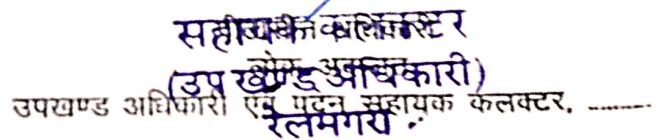 सहायक कलक्टर
(उप खण्ड अधिकारी)
उपखण्ड अधिकारी एवं पदेन सहायक कलक्टर, ..........
रेलमगरा